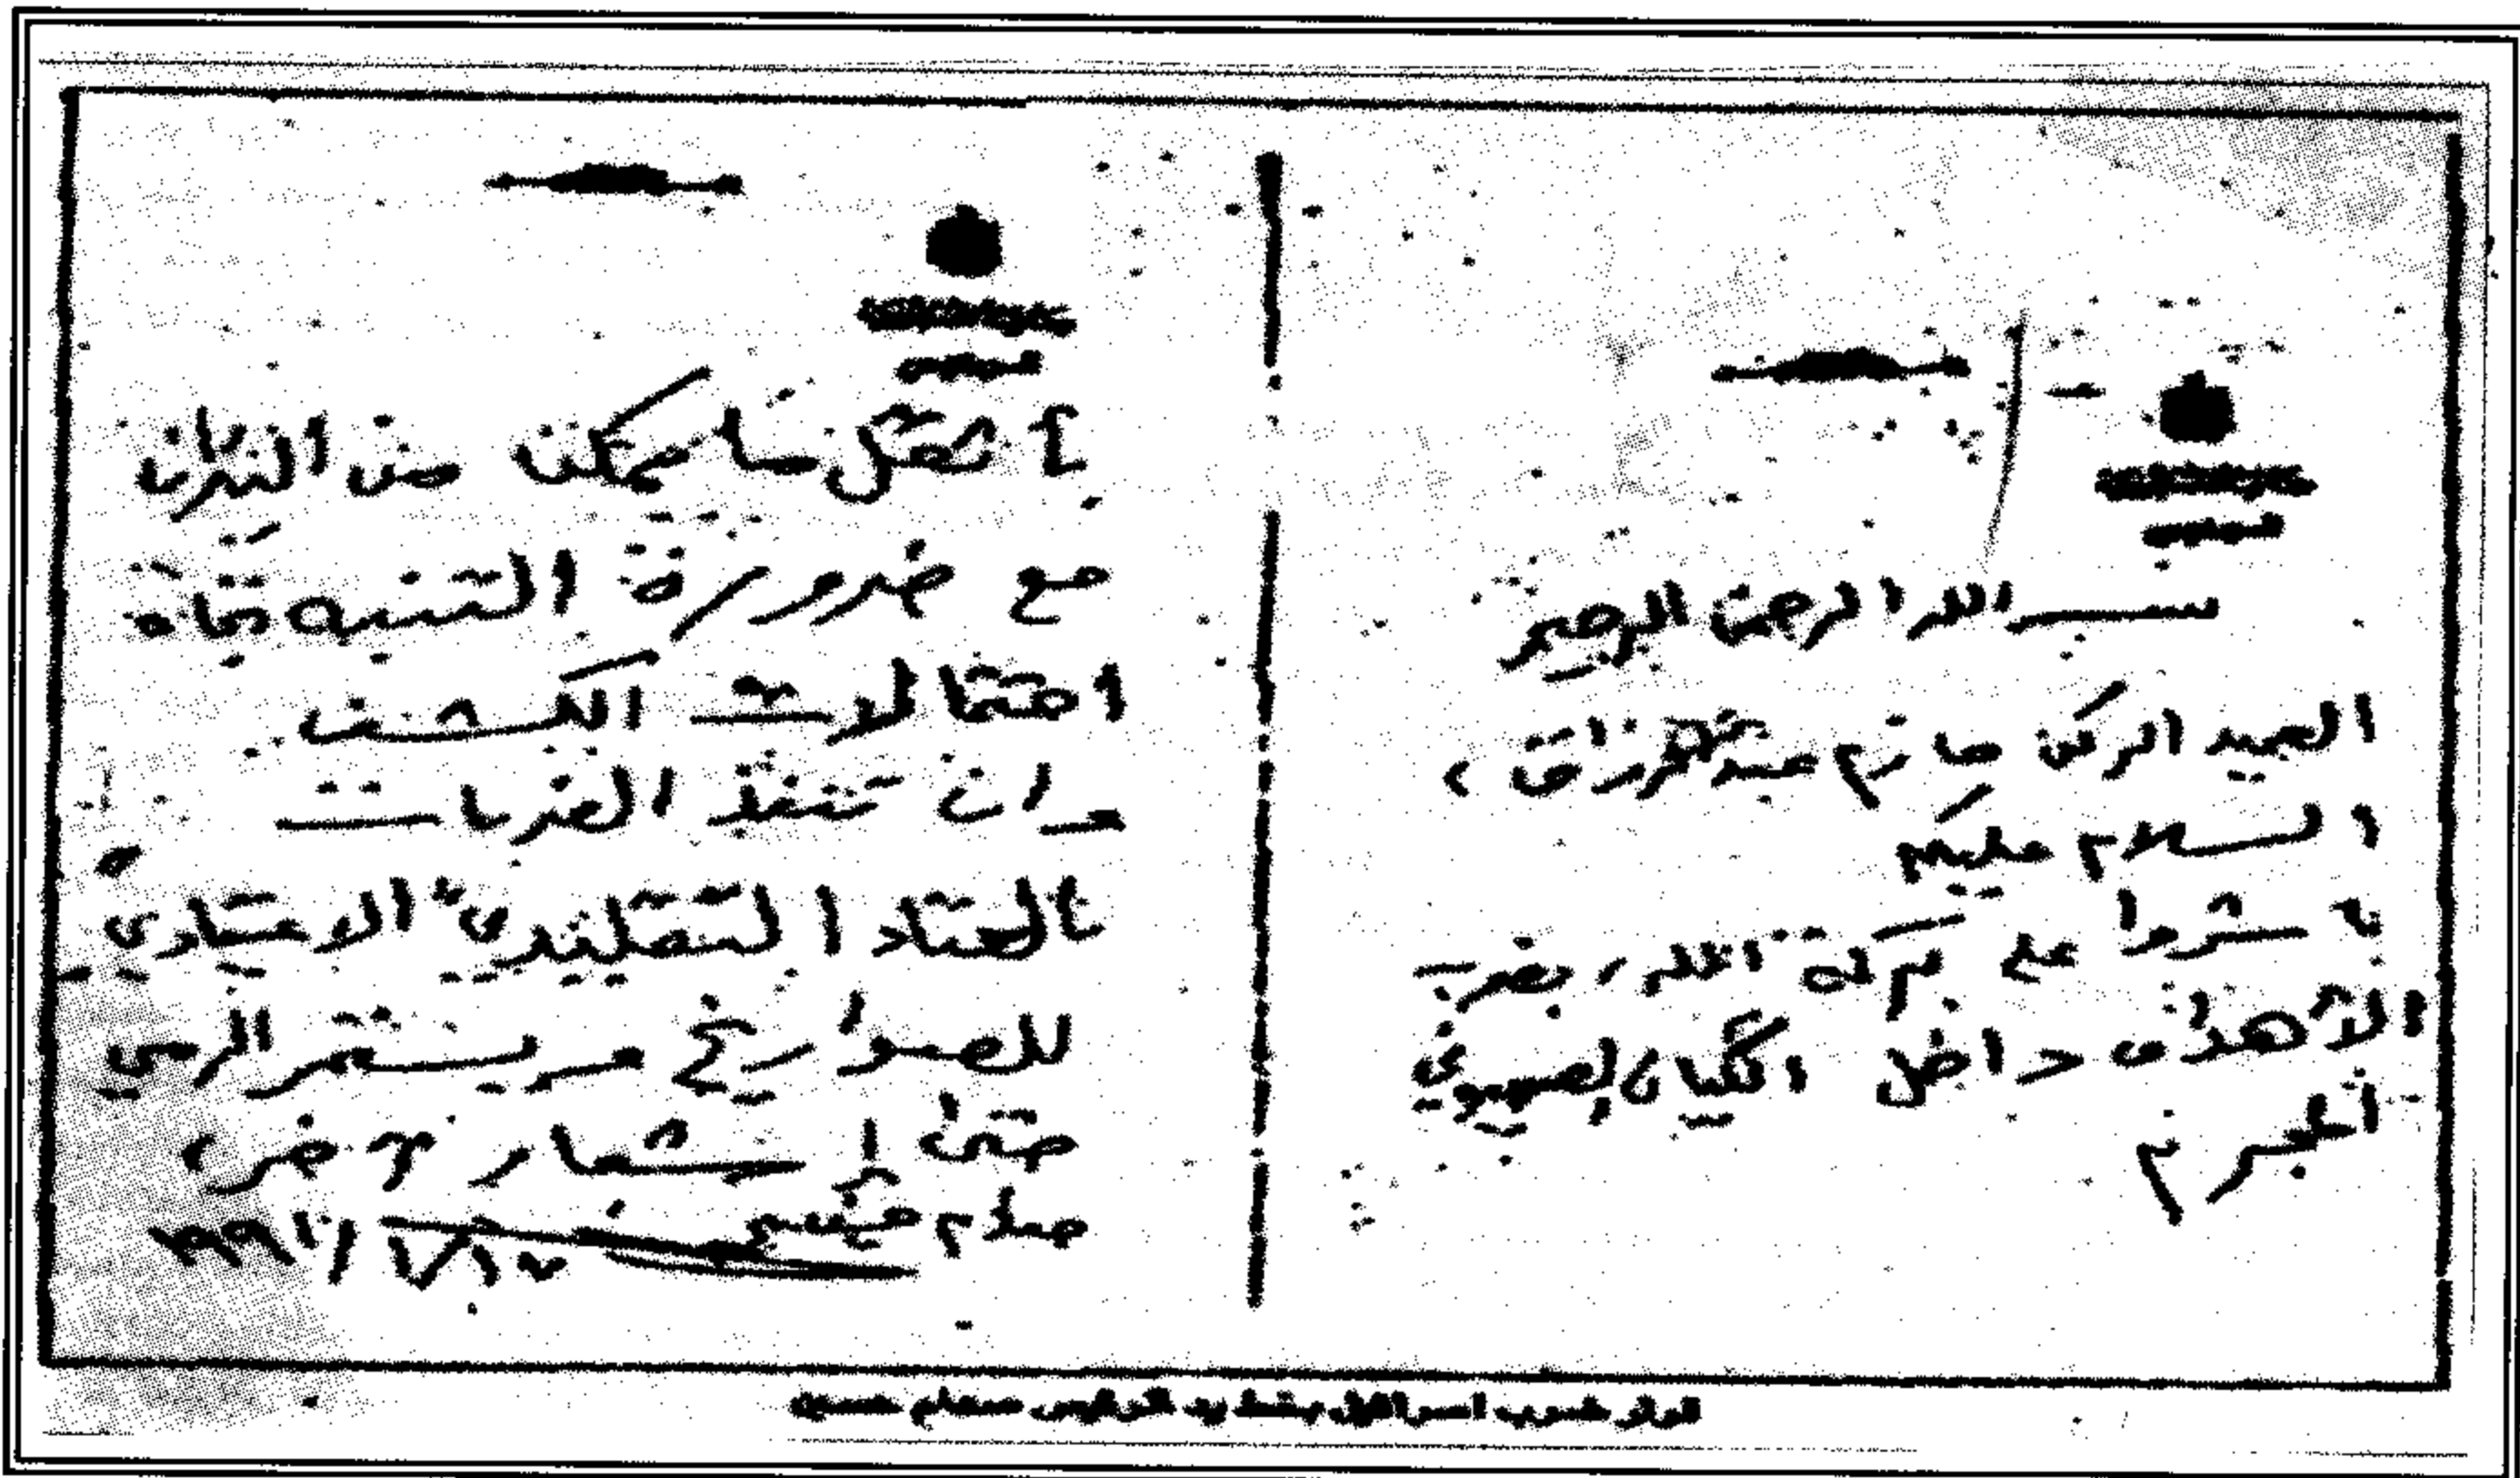 بسم الله الرحمن الرحيم
العميد الركن حازم عبد الرزاق ،
السلام عليكم
باشروا على بركة الله ، بضرب
الأهداف داخل الكيان الصهيوني
المجرم
بأثقل ما يمكن من النيران
مع ضرورة التنبيه تجاه
احتمالات الكشف .
وان تنفذ الضربات
بالعتاد التقليدي " الاعتيادي "
للصواريخ ويستمر الرمي
حتى إشعار آخر ،
صدام حسين
١٧ / ١ / ١٩٩١
قرار ضرب اسرائيل بخط يد الرئيس صدام حسين